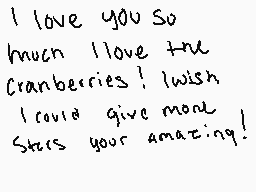 I love you so
much I love the
cranberries! I wish
I could give more
stars your amazing!